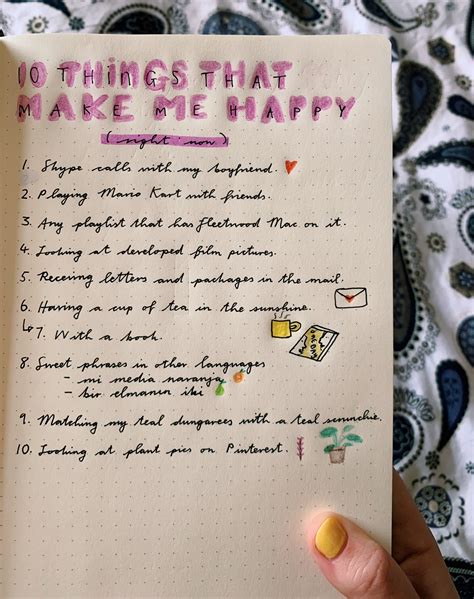 10 THINGS THAT
MAKE ME HAPPY
(right now)
1. Skype calls with my boyfriend.
2. Playing Mario Kart with friends.
3. Any playlist that has Fleetwood Mac on it.
4. Looking at developed film pictures.
5. Receiving letters and packages in the mail.
6. Having a cup of tea in the sunshine.
↳ 7. With a book.
8. Sweet phrases in other languages
- mi media naranja
- bir elmanın iki
9. Matching my teal dungarees with a teal scrunchie.
10. Looking at plant pics on Pinterest.